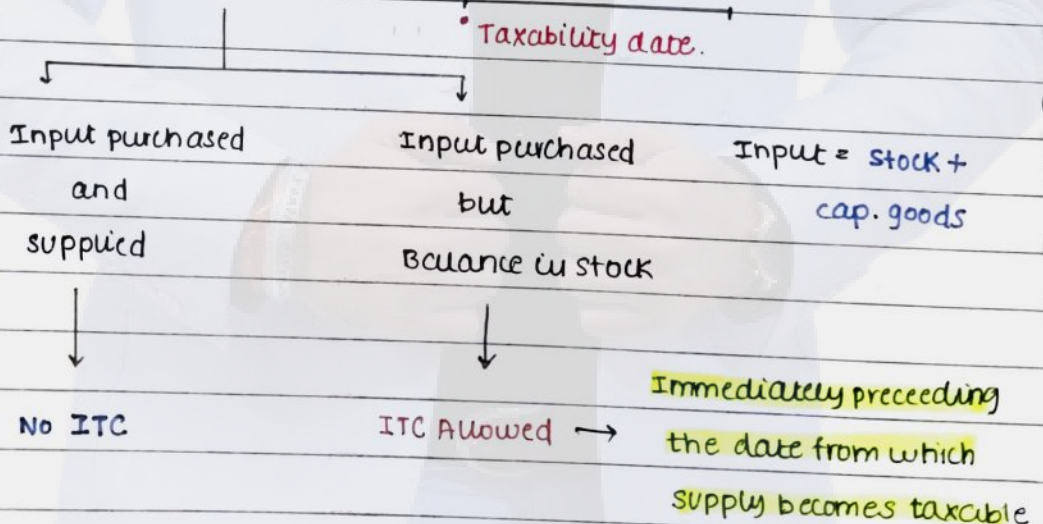 Taxability date.
Input purchased
and
supplied
Input purchased
but
Balance in stock
Input = stock +
cap. goods
No ITC
ITC Allowed →
Immediately preceeding
the date from which
supply becomes taxable